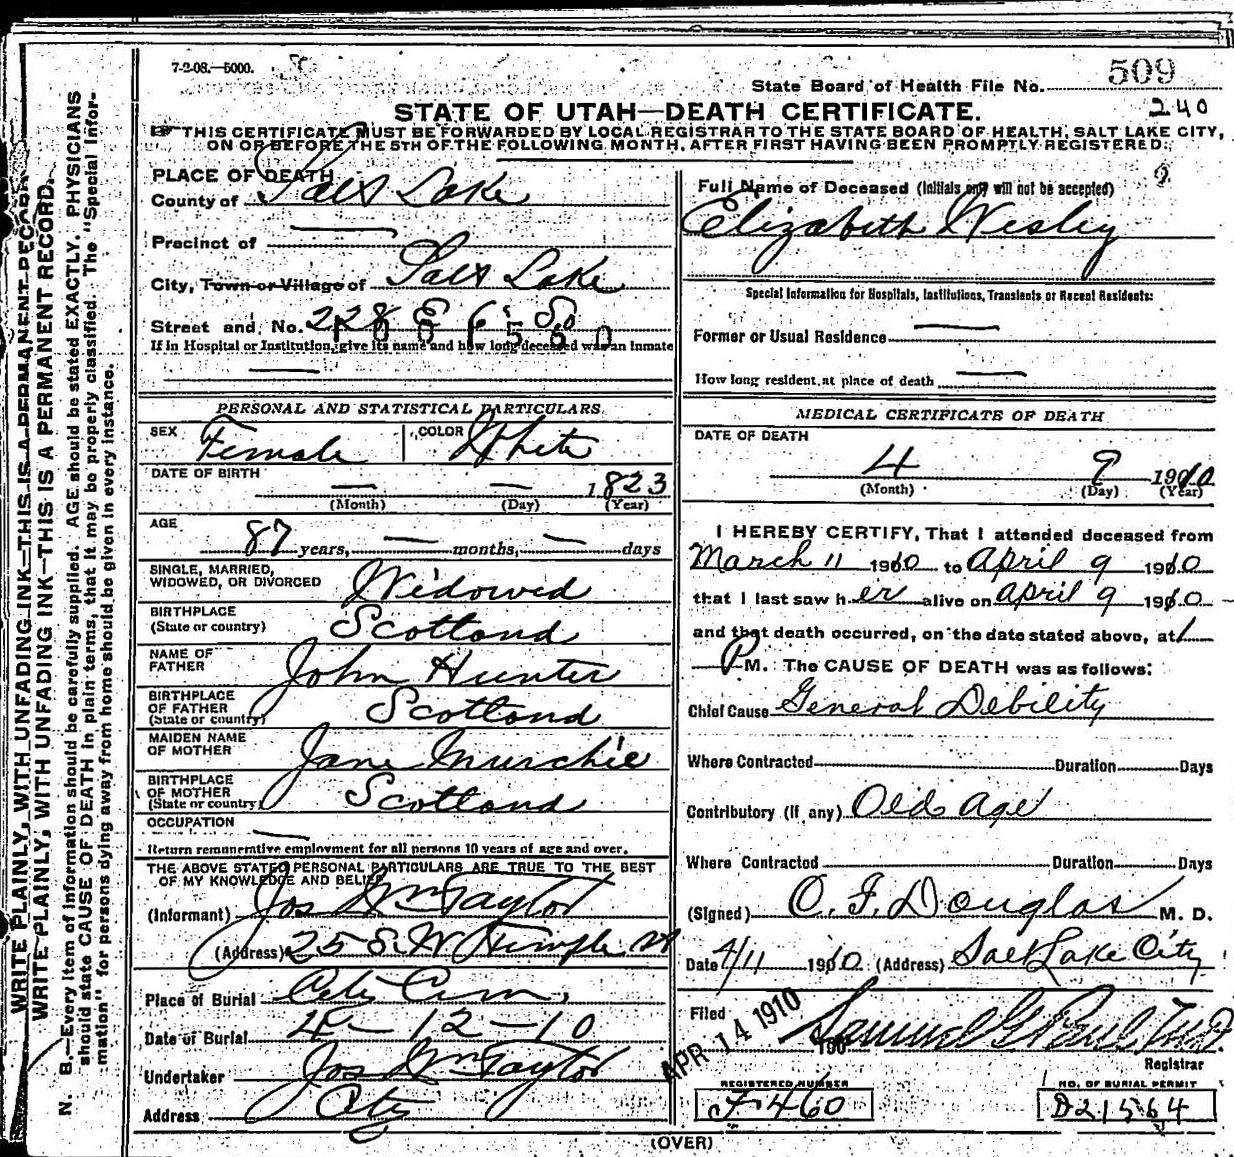 7-2-08.—5000.
State Board of Health File No. 509
240
STATE OF UTAH—DEATH CERTIFICATE.
☞ THIS CERTIFICATE MUST BE FORWARDED BY LOCAL REGISTRAR TO THE STATE BOARD OF HEALTH, SALT LAKE CITY,
ON OR BEFORE THE 5TH OF THE FOLLOWING MONTH, AFTER FIRST HAVING BEEN PROMPTLY REGISTERED.
WRITE PLAINLY, WITH UNFADING INK—THIS IS A PERMANENT RECORD
WRITE PLAINLY, WITH UNFADING INK—THIS IS A PERMANENT RECORD.
N. B.—Every item of information should be carefully supplied. AGE should be stated EXACTLY. PHYSICIANS
should state CAUSE OF DEATH in plain terms, that it may be properly classified. The "Special Infor-
mation" for persons dying away from home should be given in every instance.
PLACE OF DEATH
County of Salt Lake
Precinct of —
City, Town or Village of Salt Lake
Street and No. 228 E 6 So
If in Hospital or Institution, give its name and how long deceased was an inmate
—
PERSONAL AND STATISTICAL PARTICULARS
SEX Female COLOR White
DATE OF BIRTH — — 1823
(Month) (Day) (Year)
AGE 87 years, — months, — days
SINGLE, MARRIED,
WIDOWED, OR DIVORCED Widowed
BIRTHPLACE
(State or country) Scotland
NAME OF
FATHER John Hunter
BIRTHPLACE
OF FATHER
(State or country) Scotland
MAIDEN NAME
OF MOTHER Jane Murchie
BIRTHPLACE
OF MOTHER
(State or country) Scotland
OCCUPATION —
Return remunerative employment for all persons 10 years of age and over.
THE ABOVE STATED PERSONAL PARTICULARS ARE TRUE TO THE BEST
OF MY KNOWLEDGE AND BELIEF
(Informant) Jos Wm Taylor
(Address) 25 S. W Temple st
Place of Burial City Cem,
Date of Burial 4-12-10
Undertaker Jos Wm Taylor
Address City
Full Name of Deceased (Initials only will not be accepted)
Elizabeth Wesley
Special Information for Hospitals, Institutions, Transients or Recent Residents:
Former or Usual Residence —
How long resident at place of death —
MEDICAL CERTIFICATE OF DEATH
DATE OF DEATH
4 9 1910
(Month) (Day) (Year)
I HEREBY CERTIFY, That I attended deceased from
March 11 1910 to April 9 1910
that I last saw her alive on April 9 1910
and that death occurred, on the date stated above, at 1
P M. The CAUSE OF DEATH was as follows:
Chief Cause General Debility
Where Contracted Duration Days
Contributory (if any) Old Age
Where Contracted Duration Days
(Signed) O. F. Douglas M. D.
Date 4/11 1910 (Address) Salt Lake City
Filed APR 14 1910 190 Samuel G Paul M.D.
Registrar
REGISTERED NUMBER
F460
NO. OF BURIAL PERMIT
D21564
(OVER)